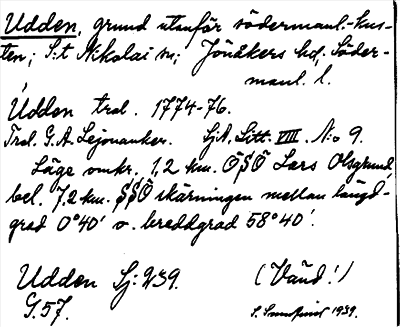 Udden, grund utanför södermanl.-kus-
ten; S:t Nikolai sn; Jönåkers hd, Söder-
manl. l.
Udden trol. 1774-76.
Trol. G.A. Lejonanker. Sj.A, Litt. VIII. N:o 9.
Läge omkr. 1,2 km. ÖSÖ Lars Olsgrund,
bel. 7,2 km. SSÖ skärningen mellan längd-
grad 0°40' o. breddgrad 58°40'.
Udden Sj: 239. (Vänd!)
G. 57. 1939.